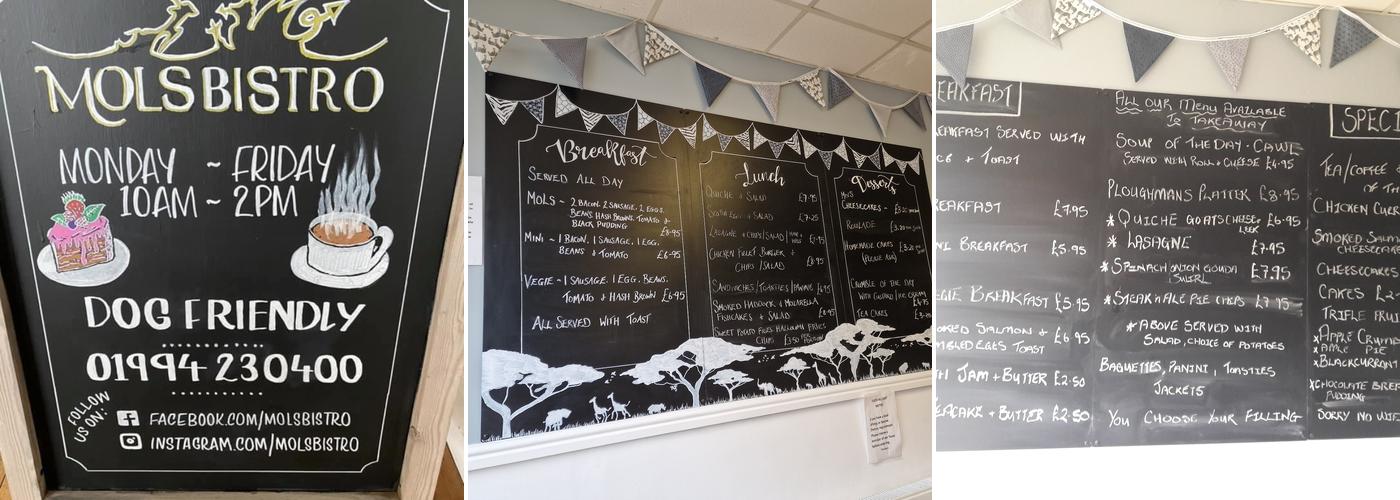 MOLSBISTRO
MONDAY ~ FRIDAY
10AM ~ 2PM
DOG FRIENDLY
01994 230400
FOLLOW
US ON:
FACEBOOK.COM/MOLSBISTRO
INSTAGRAM.COM/MOLSBISTRO
Breakfast
SERVED ALL DAY
MOLS ~ 2 BACON. 2 SAUSAGE. 2 EGGS.
BEANS. HASH BROWNS. TOMATO &
BLACK PUDDING
£8.95
MINI ~ 1 BACON. 1 SAUSAGE. 1 EGG.
BEANS + TOMATO £6.95
VEGIE ~ 1 SAUSAGE. 1 EGG. BEANS.
TOMATO + HASH BROWN £6.95
ALL SERVED WITH TOAST
Lunch
QUICHE + SALAD £7.95
SCOTCH EGG + SALAD £7.25
LASAGNE + CHIPS/SALAD
CHICKEN FILLET BURGER +
CHIPS/SALAD £8.95
SANDWICHES/TOASTIES/PANINI
SMOKED HADDOCK + MOZARELLA
FISHCAKES + SALAD £8.95
SWEET POTATO FRIES HALLOUMI FRIES
CHIPS £3.50
Desserts
CHEESECAKES -
ROULADE £3.20
HOMEMADE CAKES £3.20
(PLEASE ASK)
CRUMBLE OF THE DAY
WITH CUSTARD/ICE CREAM
TEA CAKES
EAKFAST
EAKFAST SERVED WITH
+ TOAST
EAKFAST £7.95
NI BREAKFAST £5.95
EGIE BREAKFAST £5.95
OKED SALMON +
MBLED EGGS TOAST £6.95
TH JAM + BUTTER £2.50
EACAKE + BUTTER £2.50
ALL OUR MENU AVAILABLE
TO TAKEAWAY
SOUP OF THE DAY - CAWL
SERVED WITH ROLL + CHEESE £4.95
PLOUGHMANS PLATTER £8.95
* QUICHE GOATS CHEESE £6.95
LEEK
* LASAGNE £7.95
* SPINACH ONION GOUDA £7.95
SWIRL
* STEAK n ALE PIE CHIPS £7.95
* ABOVE SERVED WITH
SALAD, CHOICE OF POTATOES
BAGUETTES, PANINI, TOASTIES
JACKETS
YOU CHOOSE YOUR FILLING
SPECI
TEA/COFFEE
CHICKEN CUR
SMOKED SALM
CHEESECAK
CHEESECAKES
CAKES
TRIFLE FRUI
* APPLE CRUMB
* APPLE PIE
* BLACKCURRAN
* CHOCOLATE BRE
PUDDING
SORRY NO WIF